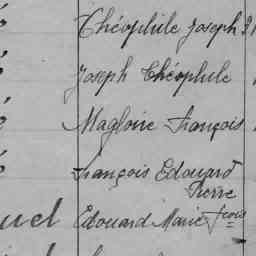 Théophile Joseph
Joseph Théophile
Magloire François
François Edouard
Pierre
uel Edouard Marie fcois